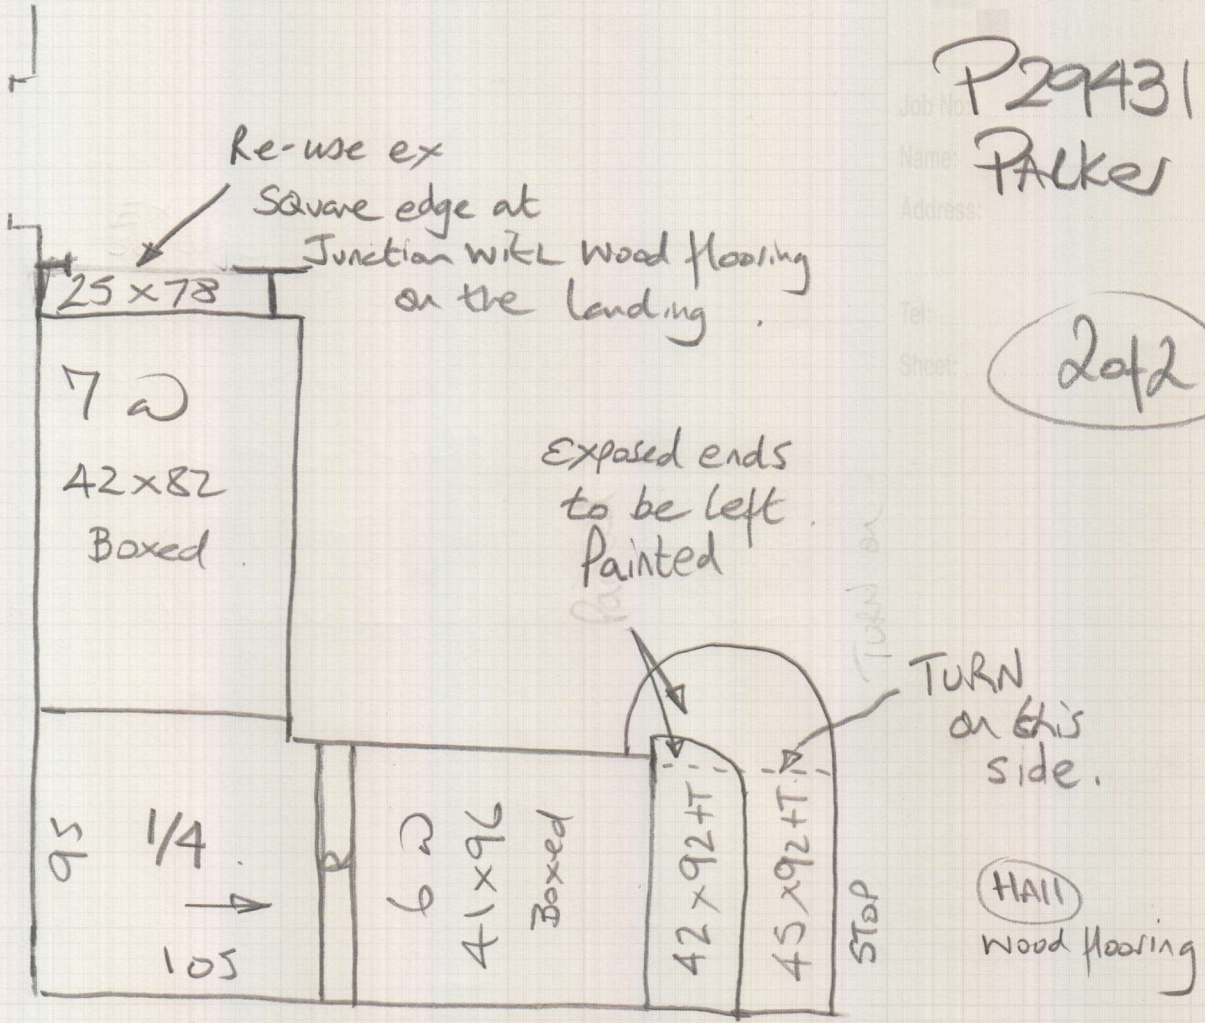 Job No:
P29431
Name:
Parker
Address:
Tel:
Sheet:
2 of 2
Re-use ex
Square edge at
Junction with wood flooring
on the landing.
25 x 78
7 @
42 x 82
Boxed
Exposed ends
to be left
Painted
TURN
on this
side.
95
1/4
105
R
6 @
41 x 96
Boxed
42 x 92 + T
45 x 92 + T
STOP
HAll
wood flooring
TURN on